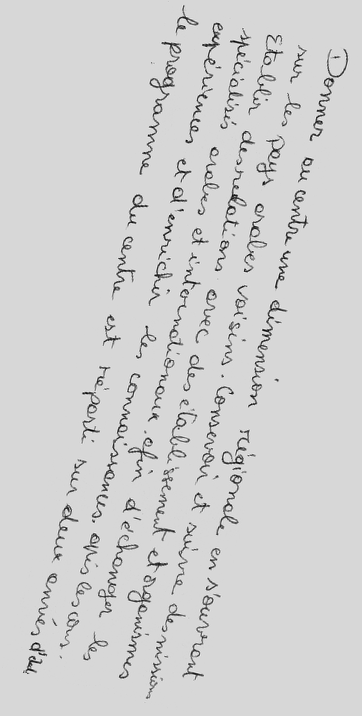 Donner au centre une dimension régionale en s'ouvrant
sur les pays arabes voisins. Concevoir et suivre des missions
Etablir des relations avec des établissement et organismes
spécialisés arabes et internationaux afin d'échanger les
expériences et d'enrichir les connaissances. après les cons.
le programme du centre est réparti sur deux années d'étud